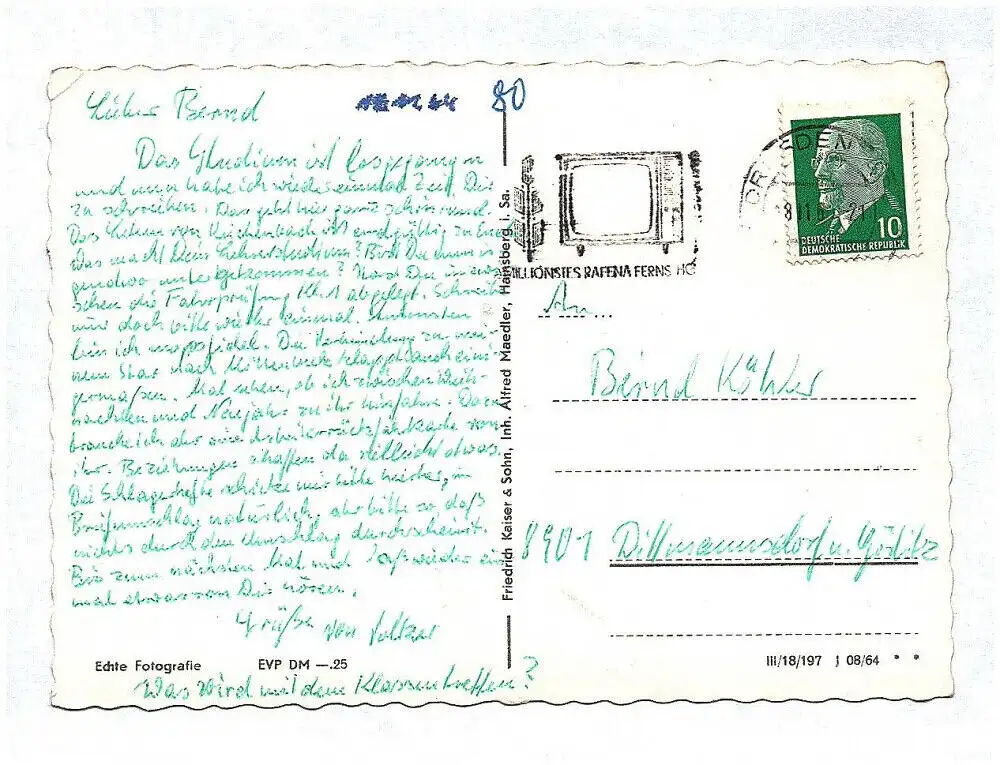 Lieber Bernd
80
Das Studium ist losgegangen
und nun habe ich wieder einmal Zeit, Dir
zu schreiben. Das geht hier ganz schön rund.
Das Lehen von Reichenbach ist endgültig zu Ende
Was macht Dein Lehrerstudium? Bist Du denn ir-
gendwo untergekommen? Hast Du inzwi-
schen die Fahrprüfung Kl. 1 abgelegt. Schreibe
mir doch bitte wieder einmal. Ansonsten
bin ich mopsfidel. Die Verbindung zu mei-
nem Star nach klappt auch eini-
germaßen. Mal sehen, ob ich zwischen Weih-
nachten und Neujahr zu ihr hinfahre. Dazu
brauche ich aber eine Arbeiterrückfahrkarte von
ihr. Beziehungen schaffen da vielleicht etwas.
Die Schlagerhefte schicke mir bitte wieder, im
Briefumschlag natürlich, aber bitte so, daß
nichts durch den Umschlag durchscheint.
Bis zum nächsten Mal und laß wieder ein-
mal etwas von Dir hören.
Grüße von Volker
Was wird mit dem Klassentreffen?
Echte Fotografie EVP DM —.25
Friedrich Kaiser & Sohn, Inh. Alfred Maedler, Hainsberg i. Sa.
MILLIONSTES RAFENA FERNS
DRESDEN
10
DEUTSCHE
DEMOKRATISCHE REPUBLIK
An
Bernd Köhler
8901 Dittmannsdorf ü. Görlitz
III/18/197 J 08/64 * *